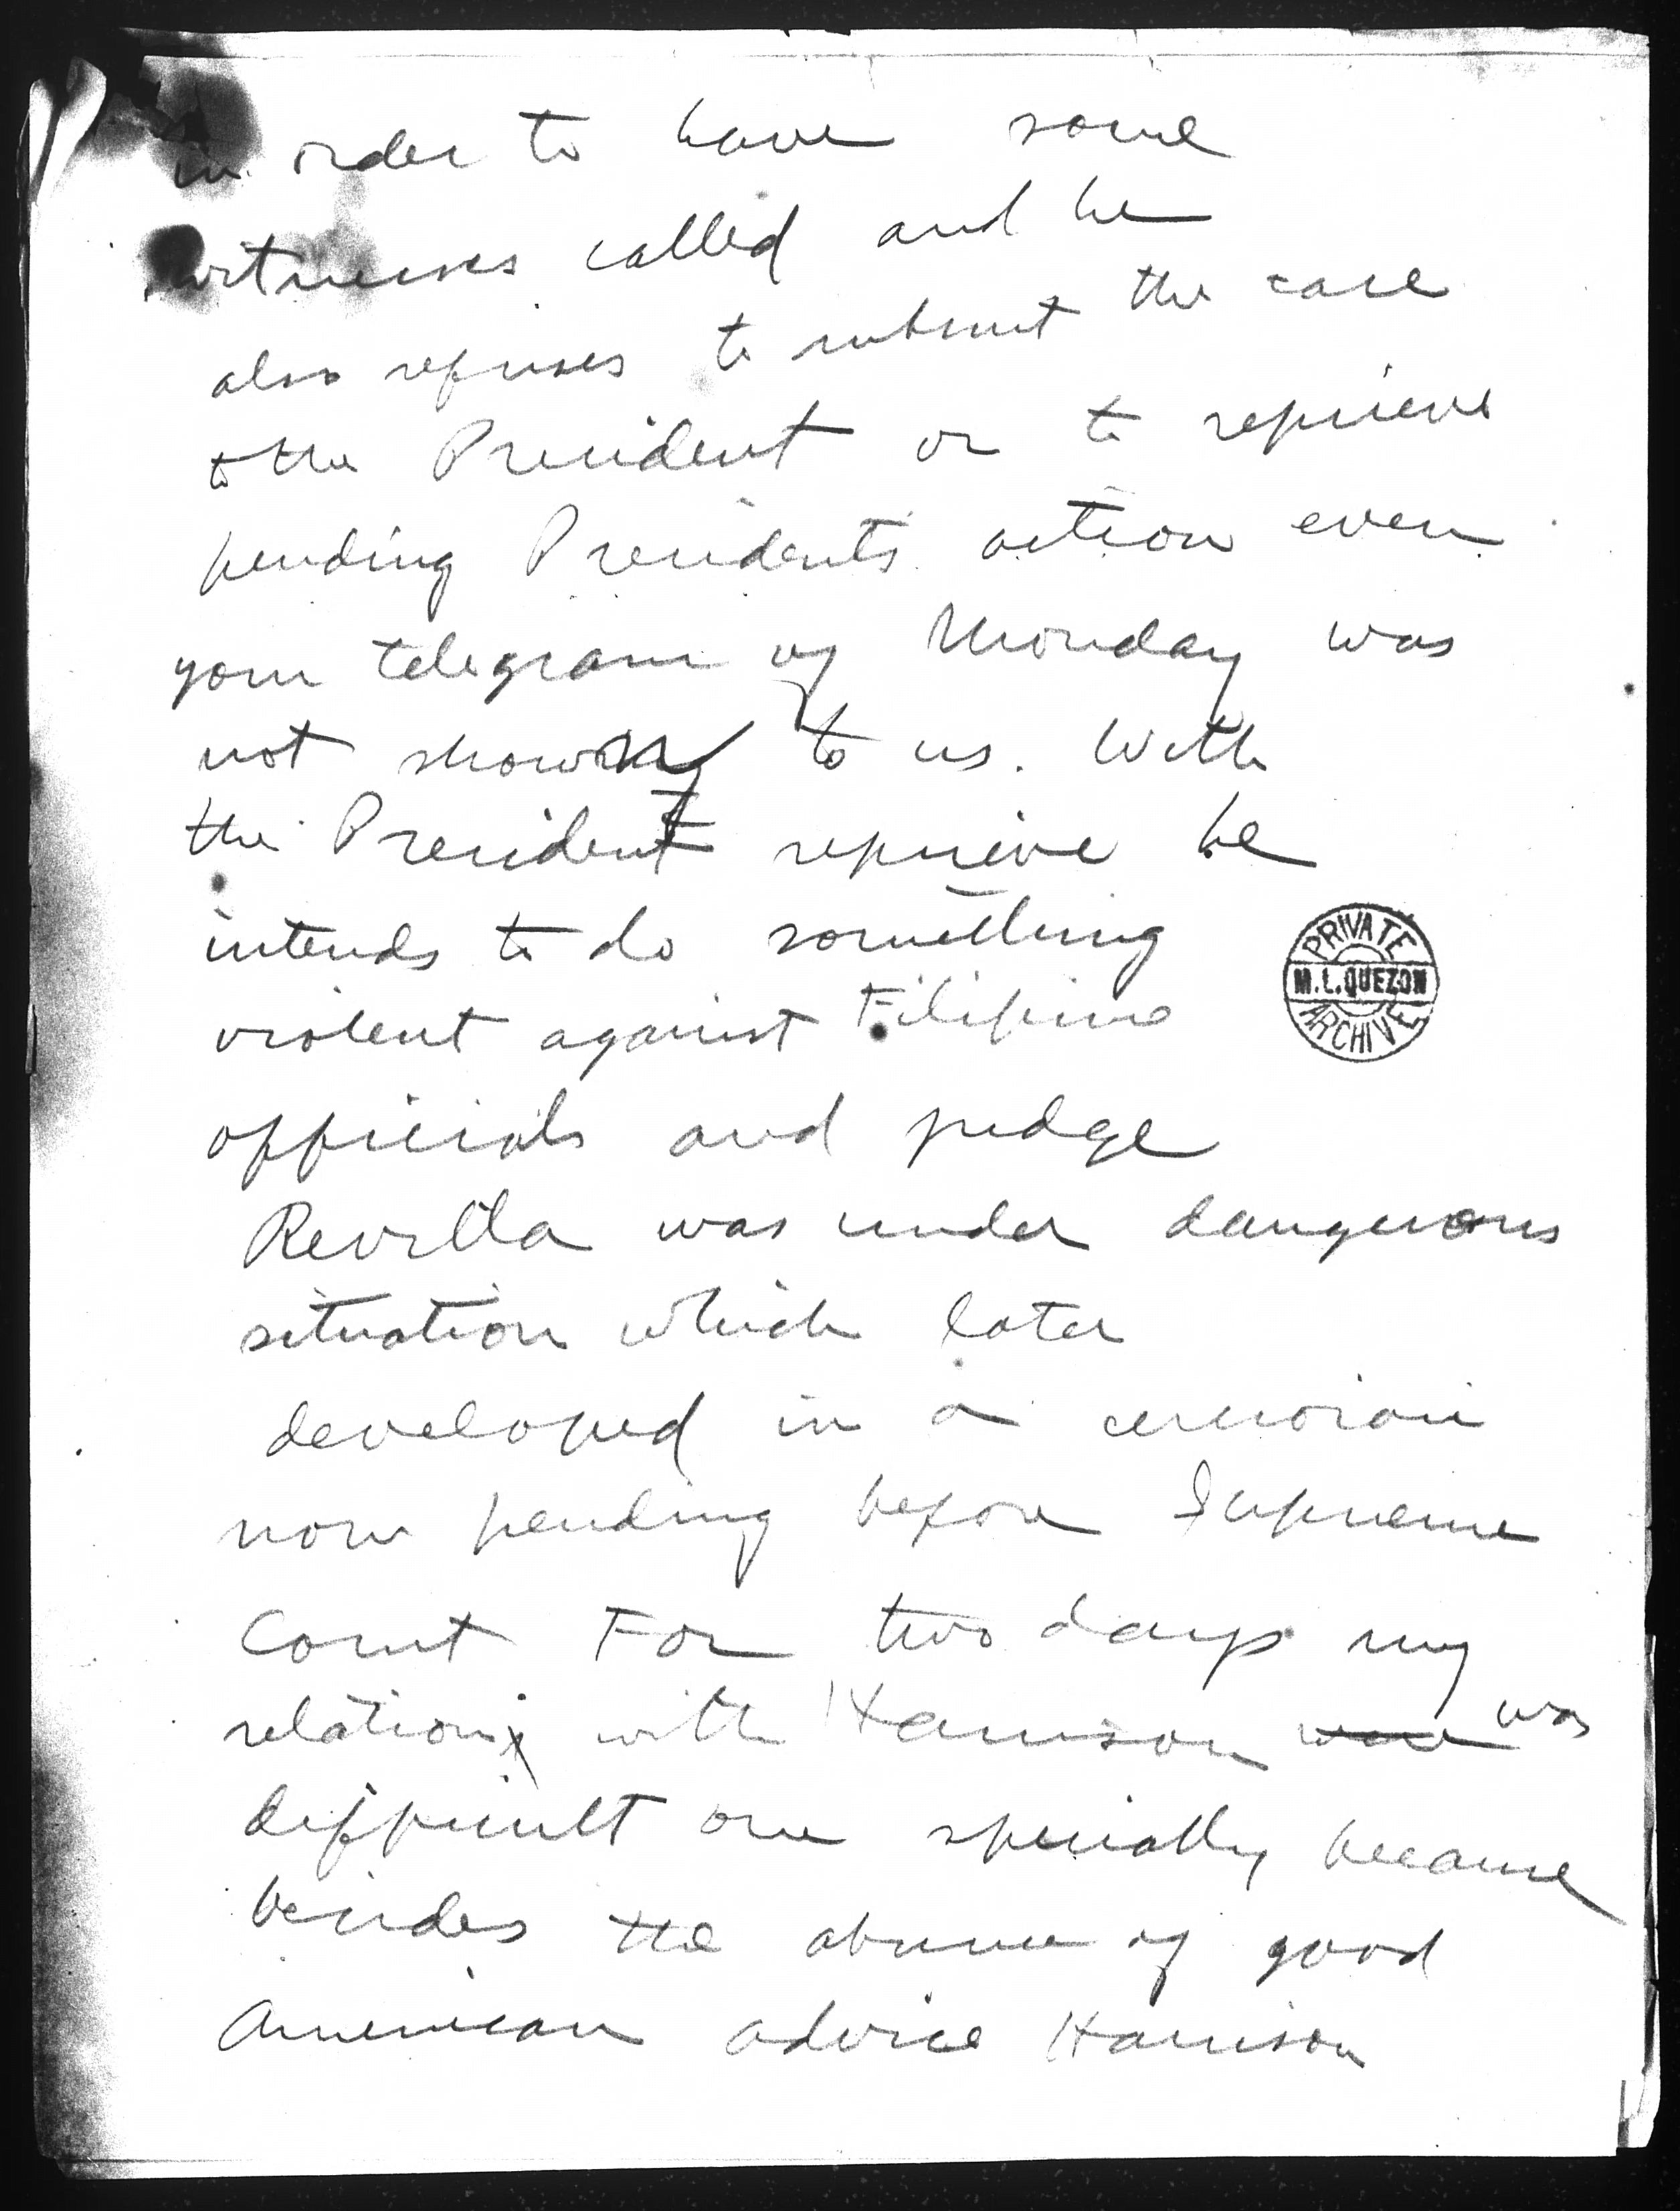 in order to have some
witnesses called and he
also refuses to submit the case
to the President or to reprieve
pending President's action even
your telegram of Monday was
not shown to us. With
the President reprieve he
intends to do something
violent against Filipino
officials and judge
Revilla was under dangerous
situation which later
developed in a cerciorari
now pending before Supreme
Court For two days my
relation with Harrison was
difficult one specially because
besides the absence of good
American advice Harrison
PRIVATE
M.L.QUEZON
ARCHIVE